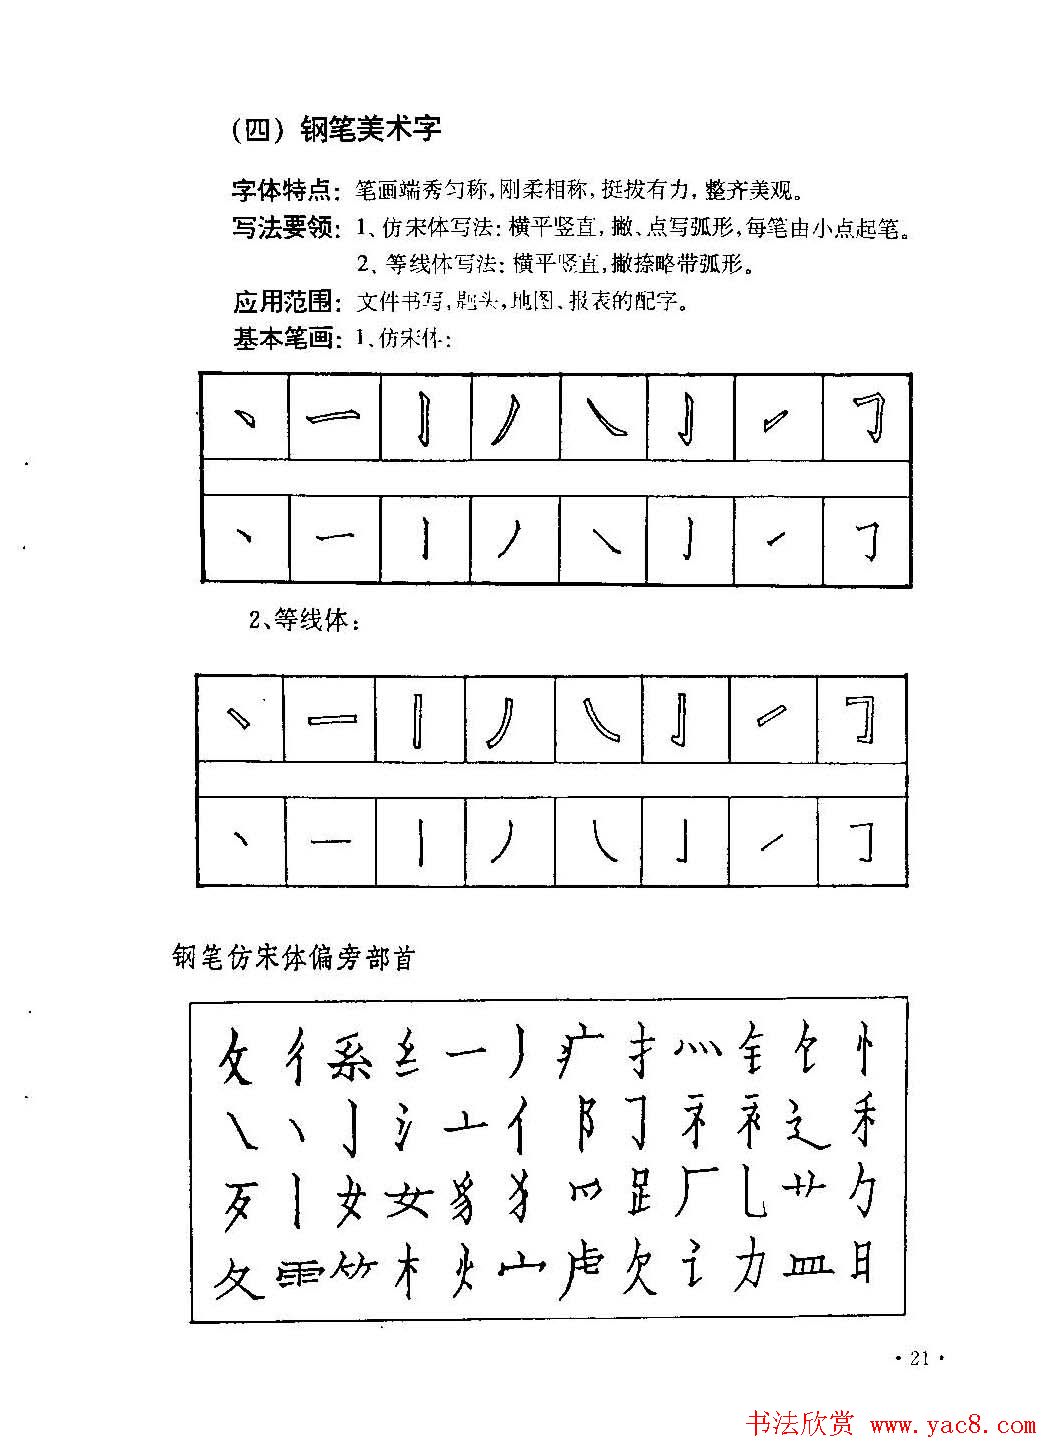 (四) 钢笔美术字
字体特点: 笔画端秀匀称,刚柔相称,挺拔有力, 整齐美观。
写法要领: 1、仿宋体写法: 横平竖直, 撇、点写弧形,每笔由小点起笔。
2、等线体写法: 横平竖直,撇捺略带弧形。
应用范围: 文件书写,题头,地图、报表的配字。
基本笔画: 1、仿宋体:
2、等线体:
钢笔仿宋体偏旁部首
攵 彳 系 纟 一 丿 疒 扌 灬 钅 饣 忄
㇏ 丶 亅 氵 亠 亻 阝 ㇆ 礻 衤 辶 禾
歹 丨 女 女 豸 犭 罒 𧾷 厂 乚 艹 勹
夂 ⻗ 竹 木 火 宀 虍 欠 讠 力 皿 日
·21·
书法欣赏 www.yac8.com